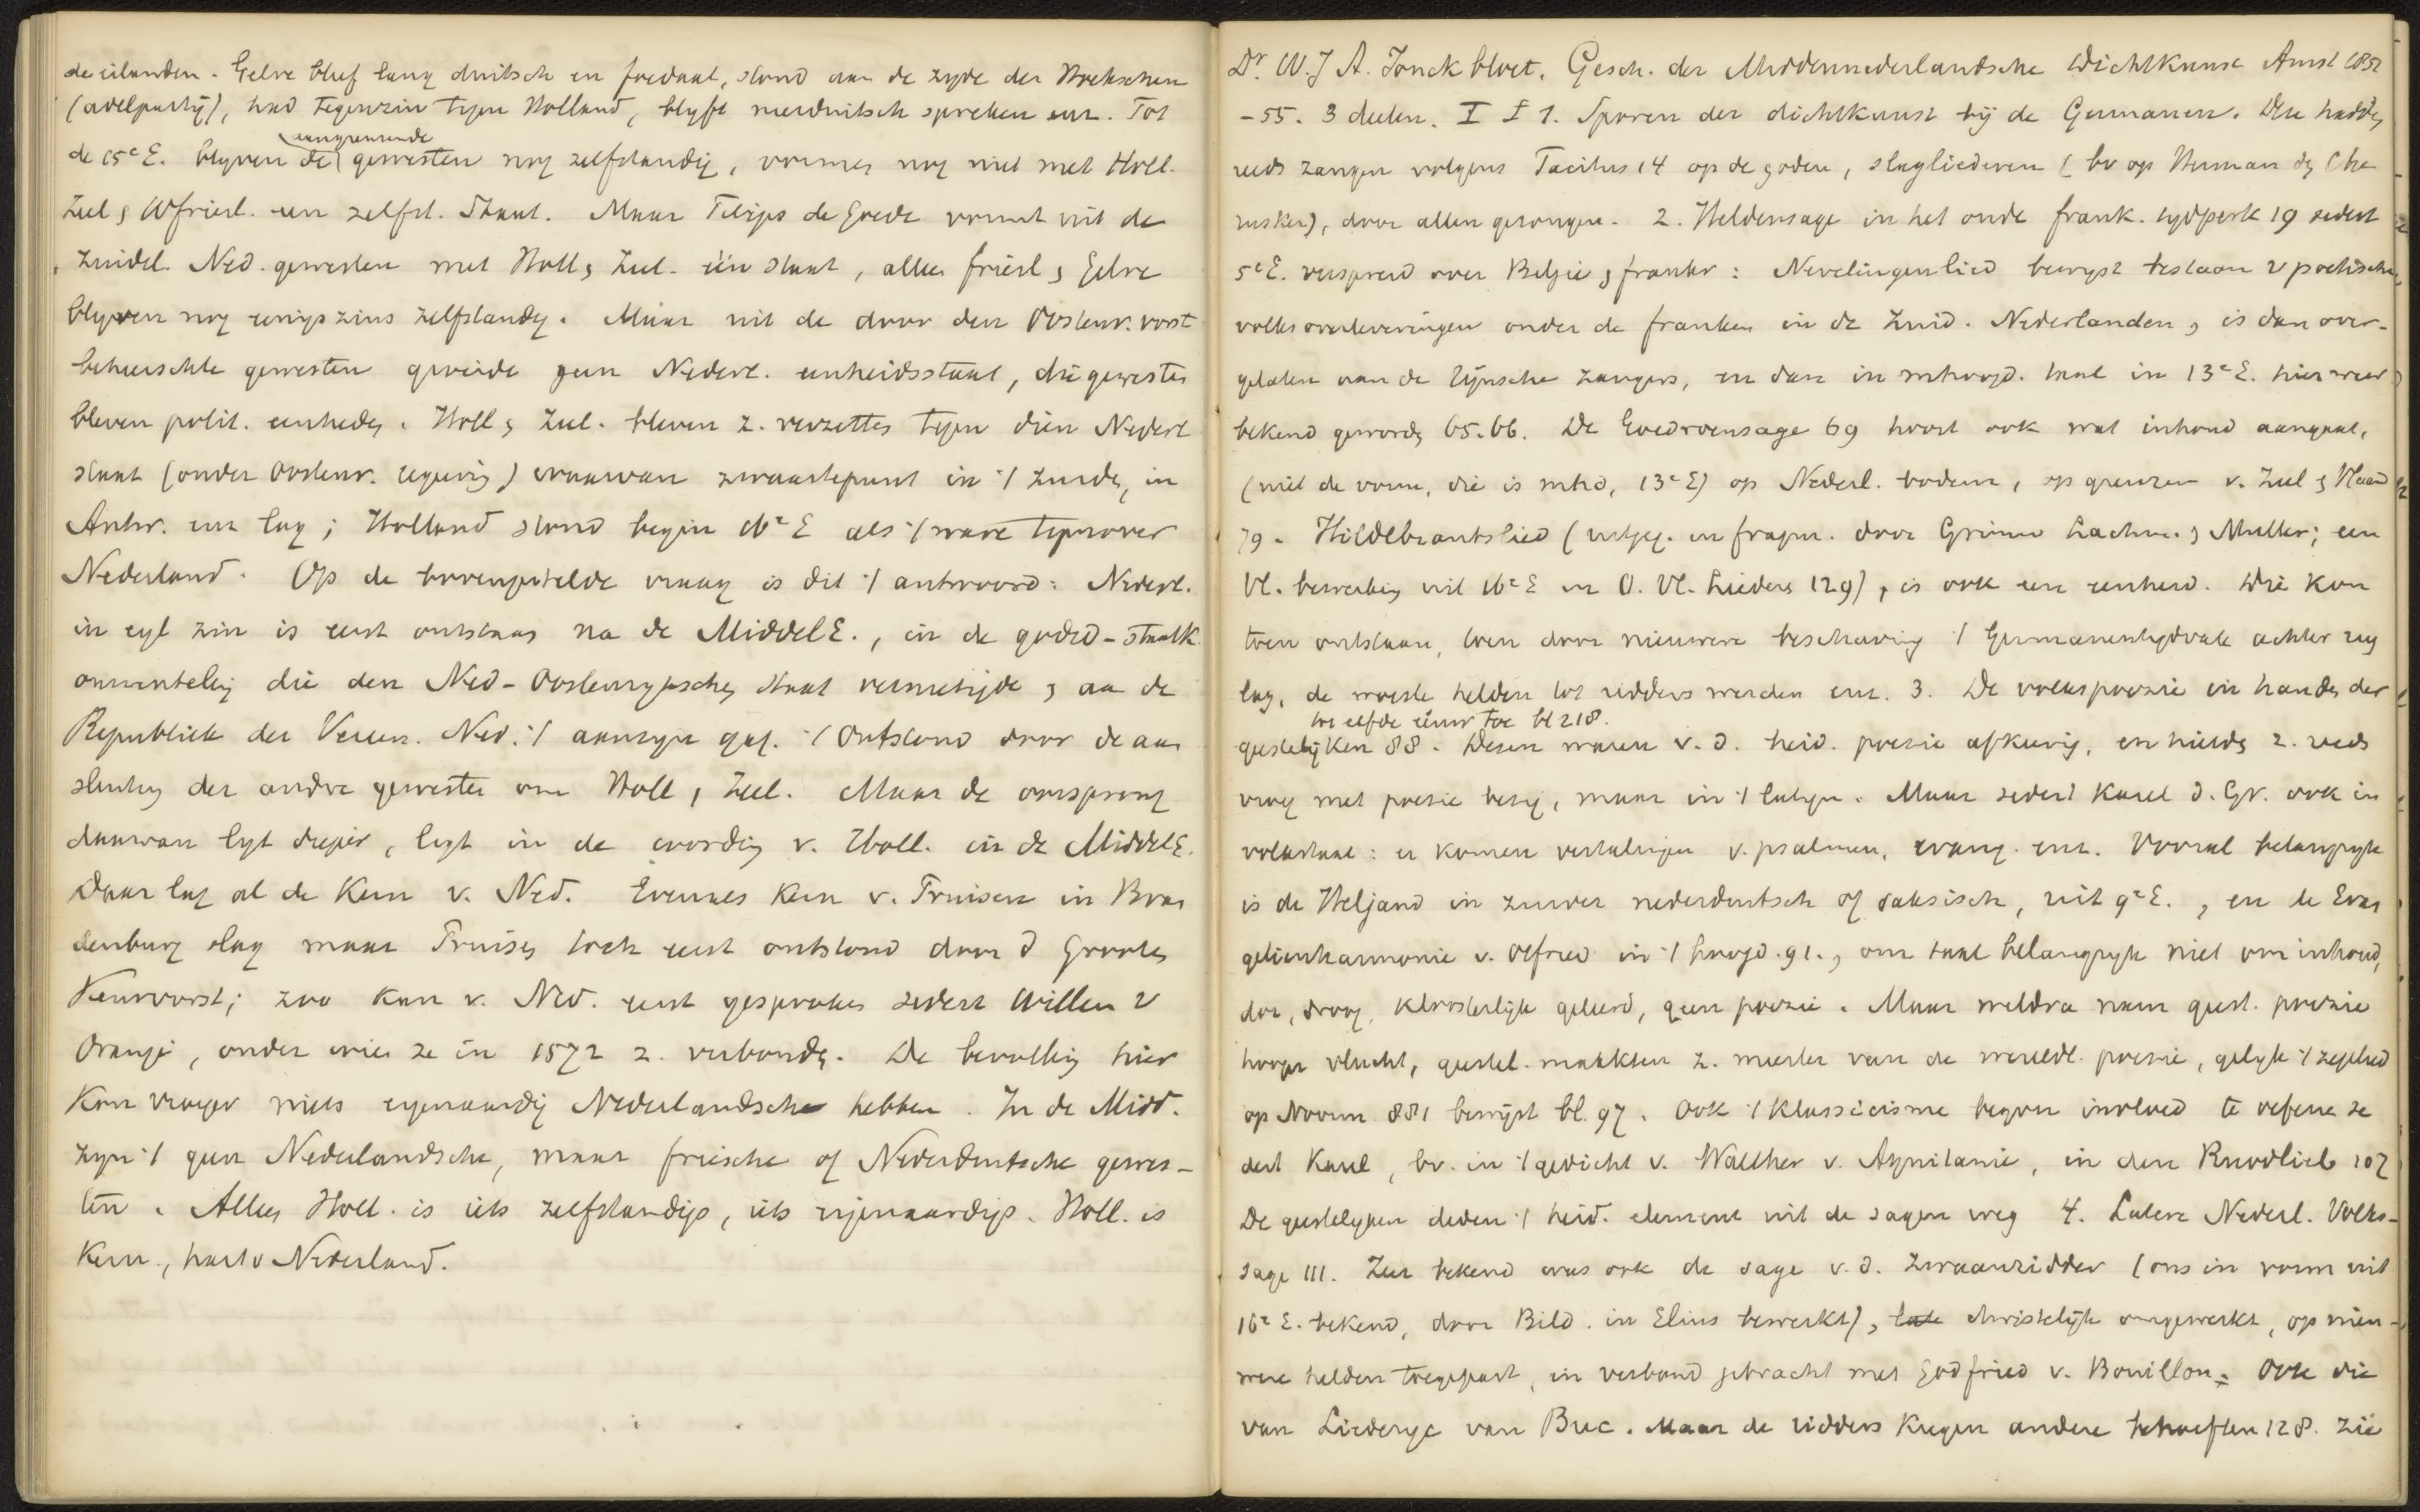 de eilanden. Gelre bleef lang duitsch en feodaal, stond aan de zyde der Hoekschen
(adelpartij), had tegenzin tegen Holland, blyft nederduitsch spreken enz. Tot
aangrenzende
de 15e E. blyven de gewesten nog zelfstandig, vormen nog niet met Holl.
Zeel & Wfriesl. een zelfst. Staat. Maar Filips de Goede vormt uit de
Zuidel. Ned. gewesten met Holl & Zeel. één staat, alleen friesl & Gelre
blyven nog eenigszins zelfstandig. Maar uit de door den Oostenr. vorst
beheerschte gewesten groeide geen Nederl. eenheidsstaat, die gewesten
bleven polit. eenheden. Holl & Zeel. bleven z. verzetten tegen dien Nederl
staat (onder Oostenr. regering) waarvan zwaartepunt in 't zuiden, in
Antw. enz lag; Holland stond begin 16e E als 't ware tegenover
Nederland. Op de bovengestelde vraag is dit 't antwoord: Nederl.
in eigl zin is eerst ontstaan na de MiddelE., in de godsd-staatk
omwenteling die den Ned-Oostenrykschen Staat vernietigde & aan de
Republiek der Vereen. Ned. 't aanzyn gaf. 't Ontstond door de aan
sluiting der andre gewesten om Holl & Zeel. Maar de oorsprong
daarvan ligt dieper, ligt in de wording v. Holl. in de MiddelE.
Daar lag al de Kern v. Ned. Evenals Kern v. Pruisen in Bran
denburg lag maar Pruisen toch eerst ontstond door d Grooten
Keurvorst; zoo kan v. Ned. eerst gesproken sedert Willem v
Oranje, onder wien ze in 1572 z. verbonden. De bevolking hier
Kon vroeger niets eigenaardig Nederlandsch hebben. In de Midd.
zyn 't geen Nederlandsche, maar friesche of Nederduitsche gewes-
ten. Alleen Holl. is iets zelfstandigs, iets eigenaardigs. Holl. is
Kern, hart v Nederland.
Dr. W. J A. Jonckbloet. Gesch. der Middennederlandsche Dichtkunst Amst 1851
-55. 3 deelen. I § 1. Sporen der dichtkunst bij de Germanen. Deze hadden
reeds zangen volgens Tacitus 14 op de goden, slagliederen (bv op Herman den Che
rusker), door allen gezongen. 2. Heldensage in het oude frank. tydperk 19 sedert
5e E. verspreid over Belgie & frankr: Nevelingenlied bewyst bestaan v poetische
volksoverleveringen onder de franken in de Zuid. Nederlanden, is dan over-
gelaten aan de Rijnsche zangers, en dan in mhoogd. taal in 13e E. hier weer
bekend geworden 65.66. De Goedroensage 69 hoort ook wat inhoud aangaat,
(niet de vorm, die is mhd, 13e E) op Nederl. bodem, op grenzen v. Zeel & Vlaand
79. Hildebrantslied (uitgeg. en fragm. door Grimm Lachm. & Muller; een
Vl. bewerking uit 16e E in O. Vl. Lieders 129), is ook een eenheid. Die kon
toen ontstaan, toen door nieuwere beschaving 't Germanentydvak achter rug
lag, de woeste helden tot ridders werden enz. 3. De volkspoezie in handen der
tot elfde eeuw toe bl 218.
geestelijken 88. Dezen waren v. d. heid. poezie afkeerig, en hielden z. reeds
vroeg met poezie bezig, maar in 't latyn. Maar sedert Karel d. Gr. ook in
volkstaal: er komen vertalingen v. psalmen, evang. enz. Vooral belangryk
is de Heljand in zuiver nederduitsch of saksisch, uit 9e E., en de Evan
gelienharmonie v. Otfried in 't hoogd. 91., om taal belangryk niet om inhoud,
dor, droog, kloosterlijk geleerd, geen poezie. Maar weldra nam geest. poezie
hooger vlucht, geestel. maakten z. meester van de wereldl. poezie, gelyk 't zegelied
op Noorm. 881 bewyst bl. 97. Ook 't klassicisme begon invloed te oefenen se
dert Karel, bv. in 't gedicht v. Walther v. Aquitanie, in den Ruodlieb 107
De geestelyken deden 't heid. element uit de sagen weg 4. Latere Nederl. Volks-
sage 111. Zeer bekend was ook de sage v. d. Zwaanridder (ons in vorm uit
16e E. bekend, door Bild. in Elius bewerkt), late christelijk omgewerkt, op nieu-
were helden toegepast, in verband gebracht met Godfried v. Bouillon. Ook die
van Liederyc van Buc. Maar de ridders kregen andere behoeften 128. Zie